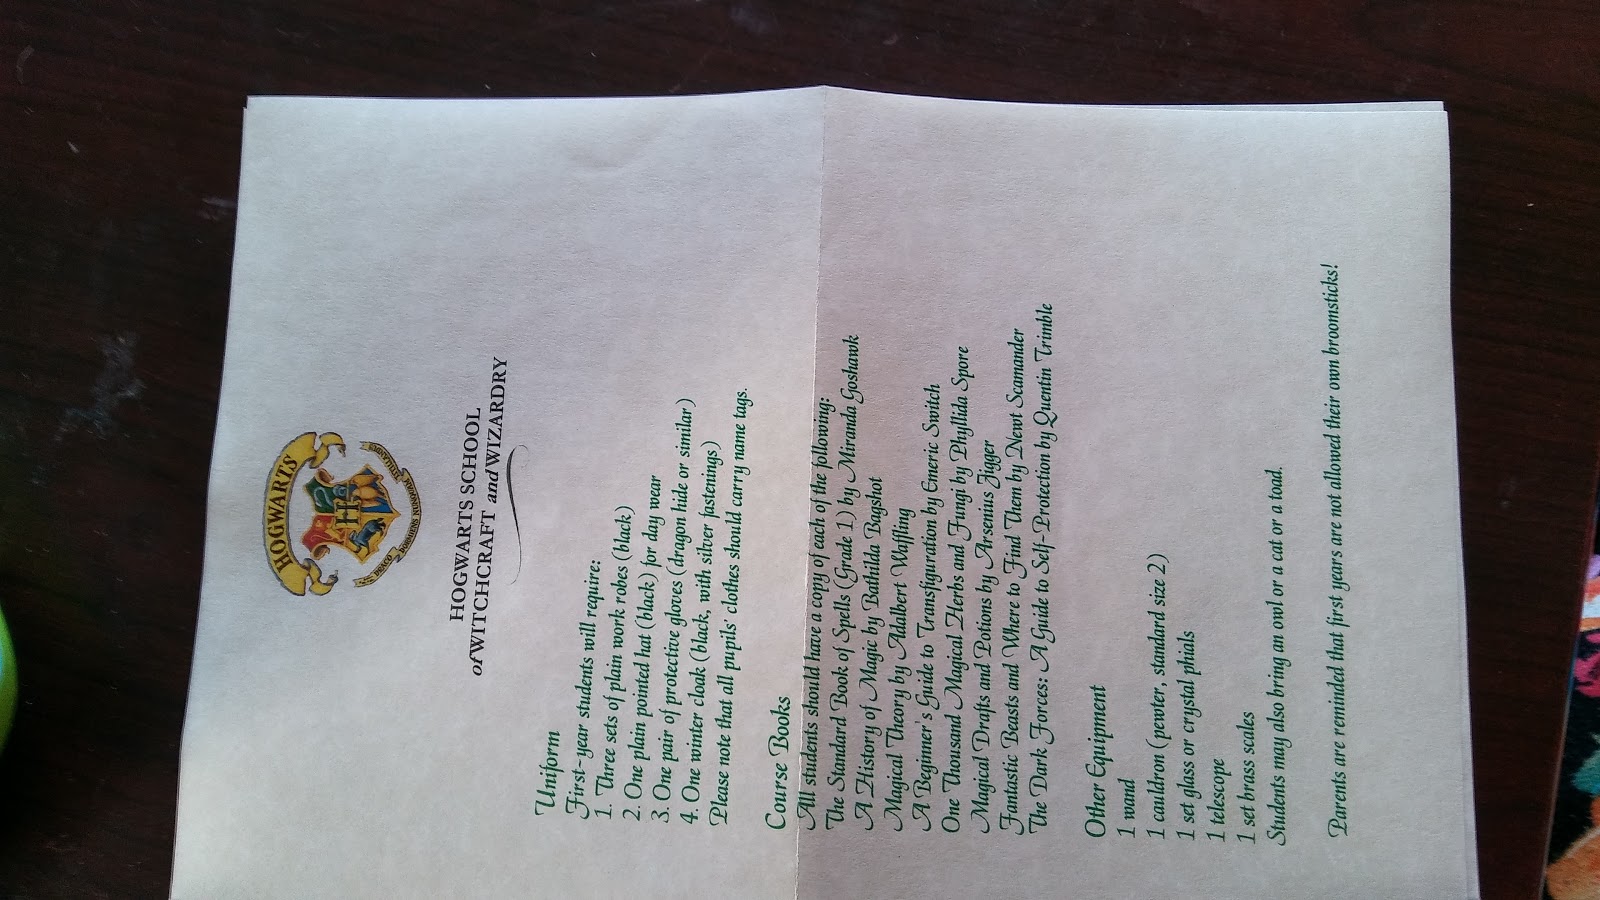 HOGWARTS
DRACO DORMIENS NUNQUAM TITILLANDUS
HOGWARTS SCHOOL
of WITCHCRAFT and WIZARDRY
Uniform
First-year students will require:
1. Three sets of plain work robes (black)
2. One plain pointed hat (black) for day wear
3. One pair of protective gloves (dragon hide or similar)
4. One winter cloak (black, with silver fastenings)
Please note that all pupils' clothes should carry name tags.
Course Books
All students should have a copy of each of the following:
The Standard Book of Spells (Grade 1) by Miranda Goshawk
A History of Magic by Bathilda Bagshot
Magical Theory by Adalbert Waffling
A Beginner's Guide to Transfiguration by Emeric Switch
One Thousand Magical Herbs and Fungi by Phyllida Spore
Magical Drafts and Potions by Arsenius Jigger
Fantastic Beasts and Where to Find Them by Newt Scamander
The Dark Forces: A Guide to Self-Protection by Quentin Trimble
Other Equipment
1 wand
1 cauldron (pewter, standard size 2)
1 set glass or crystal phials
1 telescope
1 set brass scales
Students may also bring an owl or a cat or a toad.
Parents are reminded that first years are not allowed their own broomsticks!